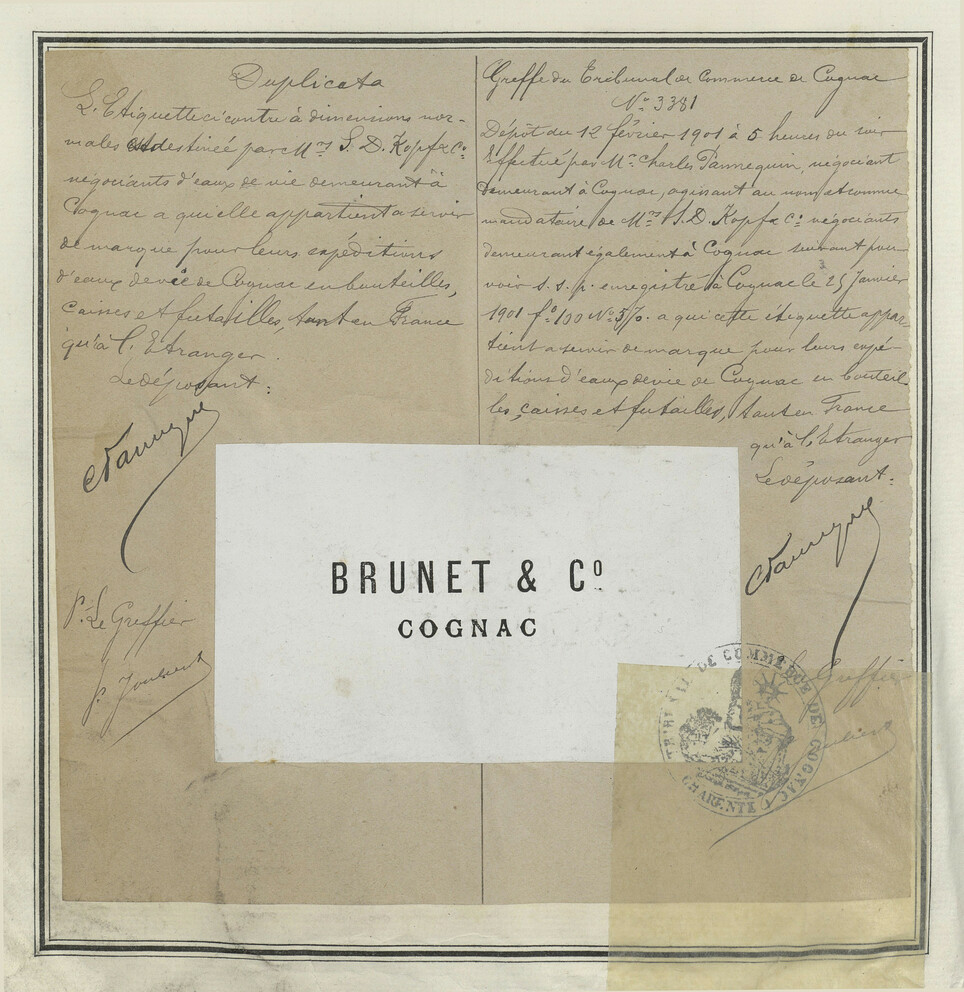 Duplicata
L'Etiquette ci contre à dimensions nor-
males est destinée par Mrs S. D. Kopf & Co.
négociants d'eaux de vie demeurant à
Cognac a qui elle appartient a servir
de marque pour leurs expéditions
d'eaux de vie de Cognac en bouteilles,
caisses et futailles, tant en France
qu'à l'Etranger.
Le déposant:
P. Le Greffier
Greffe du Tribunal de Commerce de Cognac
No 3381
Dépôt du 12 février 1901 à 5 heures du soir
Effectué par Mr Charles Pannequin, négociant
demeurant à Cognac, agissant au nom et comme
mandataire de Mrs S. D. Kopf & Co négociants
demeurant également à Cognac suivant pou-
voir s. s. p. enregistré à Cognac le 25 Janvier
1901 fo 100 No a qui cette étiquette appar-
tient a servir de marque pour leurs expé-
ditions d'eaux de vie de Cognac en bouteil-
les, caisses et futailles, tant en France
qu'à l'Etranger
Le déposant:
BRUNET & Co
COGNAC
Le Greffier
TRIBUNAL DE COMMERCE DE COGNAC
CHARENTE